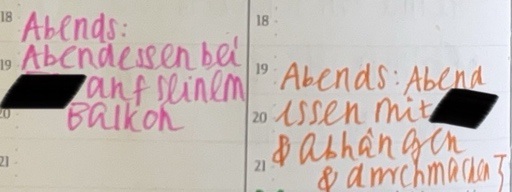 18 Abends:
19 Abendessen bei
auf seinem
20 Balkon
21
18
19 Abends: Abend
20 essen mit
& abhängen
21 & durchmachen